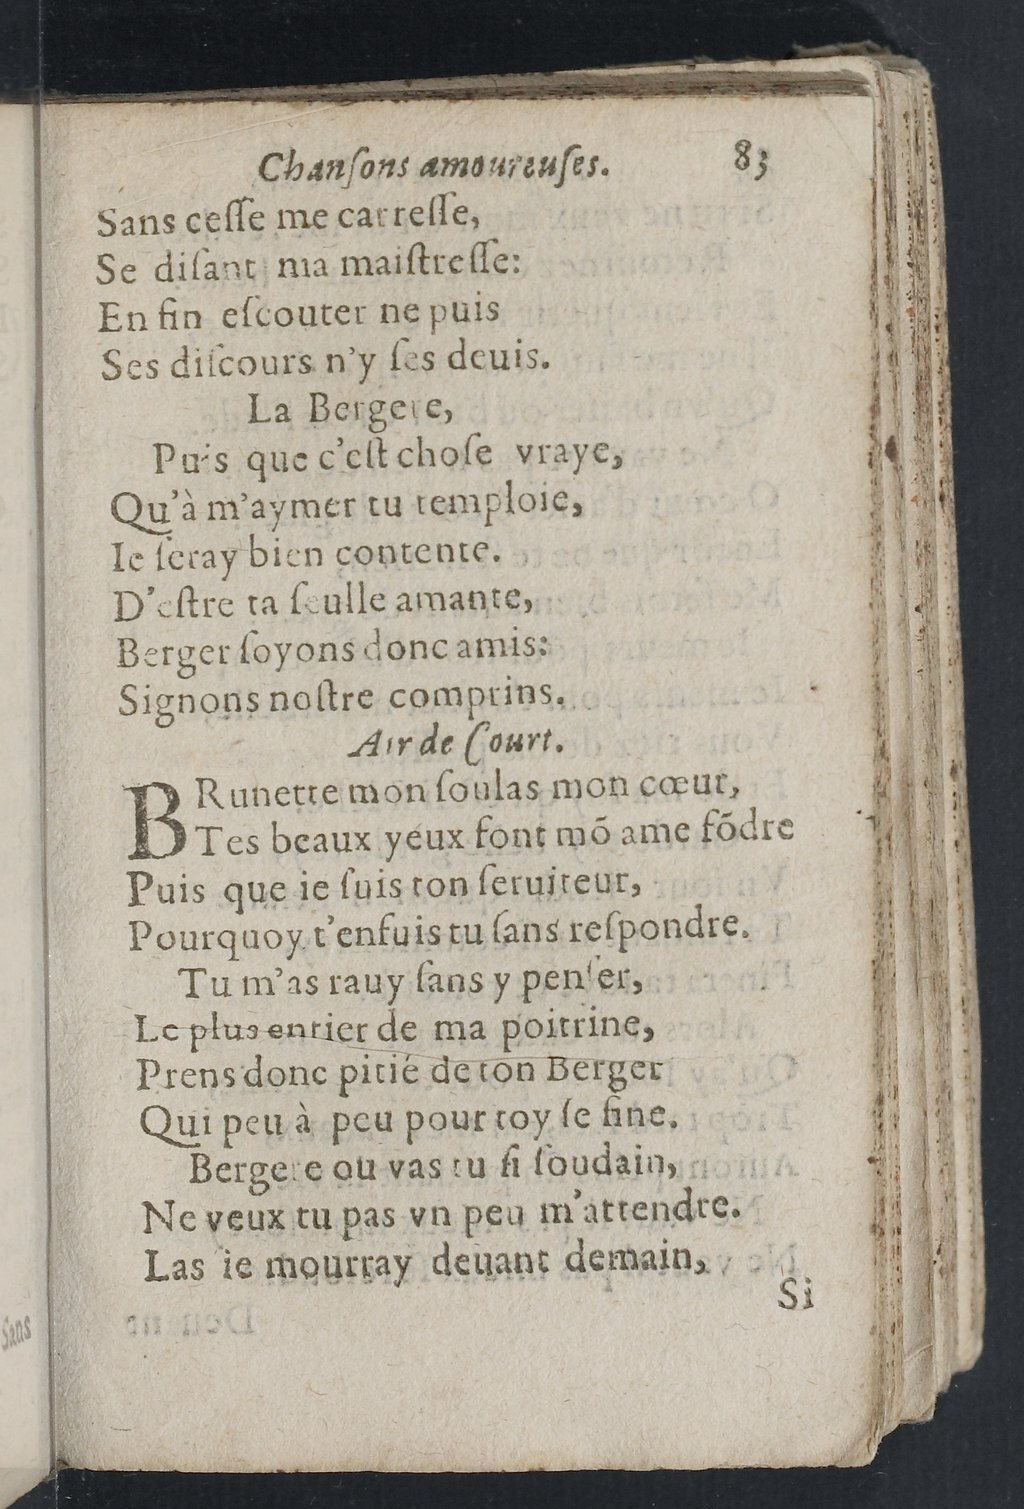 Chanſons amoureuſes. 83
Sans ceſſe me carreſſe,
Se diſant ma maiſtreſſe:
En fin eſcouter ne puis
Ses diſcours n'y ſes deuis.
La Bergere,
Puis que c'eſt choſe vraye,
Qu'à m'aymer tu temploie,
Ie ſeray bien contente.
D'eſtre ta ſeulle amante,
Berger ſoyons donc amis:
Signons noſtre comprins.
Air de Court.
BRunette mon ſoulas mon cœur,
Tes beaux yeux font mõ ame fõdre
Puis que ie ſuis ton ſeruiteur,
Pourquoy t'enfuis tu ſans reſpondre.
Tu m'as rauy ſans y penſer,
Le plus entier de ma poitrine,
Prens donc pitié de ton Berger
Qui peu à peu pour toy ſe fine.
Bergere ou vas tu ſi ſoudain,
Ne veux tu pas vn peu m'attendre.
Las ie mourray deuant demain,
Si
Sans